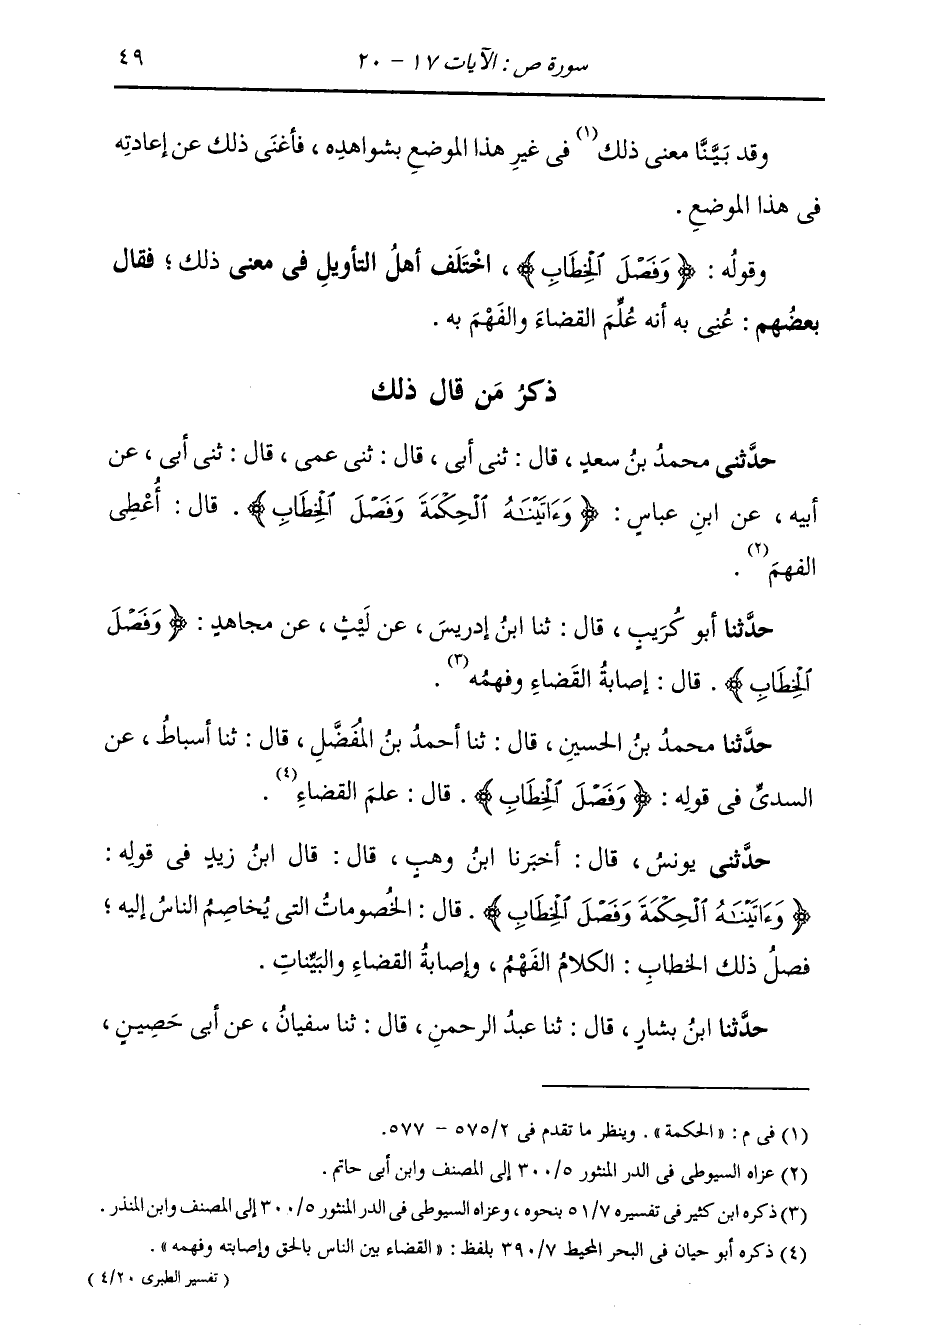 سورة ص : الآيات ١٧ - ٢٠
٤٩
وقد بَيَّنَّا معنى ذلك(١) فى غيرِ هذا الموضعِ بشواهدِه ، فأغنَى ذلك عن إعادتِه
فى هذا الموضعِ .
وقولُه : ﴿ وَفَصْلَ ٱلْخِطَابِ ﴾ ، اخْتَلَف أهلُ التأويلِ فى معنى ذلك ؛ فقال
بعضُهم : عُنِى به أنه عُلِّمَ القضاءَ والفَهْمَ به .
ذكرُ مَن قال ذلك
حدَّثنى محمدُ بنُ سعدٍ ، قال : ثنى أبى ، قال : ثنى عمى ، قال : ثنى أبى ، عن
أبيه ، عن ابنِ عباسٍ : ﴿ وَءَاتَيْنَـٰهُ ٱلْحِكْمَةَ وَفَصْلَ ٱلْخِطَابِ ﴾ . قال : أُعْطِى
الفهمَ(٢) .
حدَّثنا أبو كُرَيبٍ ، قال : ثنا ابنُ إدريسَ ، عن لَيْثٍ ، عن مجاهدٍ : ﴿ وَفَصْلَ
ٱلْخِطَابِ ﴾ . قال : إصابةُ القَضاءِ وفهمُه(٣) .
حدَّثنا محمدُ بنُ الحسينِ ، قال : ثنا أحمدُ بنُ المُفَضَّلِ ، قال : ثنا أسباطُ ، عن
السدىِّ فى قولِه : ﴿ وَفَصْلَ ٱلْخِطَابِ ﴾ . قال : علمَ القضاءِ(٤) .
حدَّثنى يونسُ ، قال : أخبَرنا ابنُ وهبٍ ، قال : قال ابنُ زيدٍ فى قولِه :
﴿ وَءَاتَيْنَـٰهُ ٱلْحِكْمَةَ وَفَصْلَ ٱلْخِطَابِ ﴾ . قال : الخُصوماتُ التى يُخاصِمُ الناسُ إليه ؛
فصلُ ذلك الخطابِ : الكلامُ الفَهْمُ ، وإصابةُ القضاءِ والبَيِّناتِ .
حدَّثنا ابنُ بشارٍ ، قال : ثنا عبدُ الرحمنِ ، قال : ثنا سفيانُ ، عن أبى حَصِينٍ ،
(١) فى م : « الحكمة » . وينظر ما تقدم فى ٢/ ٥٧٥ - ٥٧٧.
(٢) عزاه السيوطى فى الدر المنثور ٥/ ٣٠٠ إلى المصنف وابن أبى حاتم .
(٣) ذكره ابن كثير فى تفسيره ٧/ ٥١ بنحوه ، وعزاه السيوطى فى الدر المنثور ٥/ ٣٠٠ إلى المصنف وابن المنذر .
(٤) ذكره أبو حيان فى البحر المحيط ٧/ ٣٩٠ بلفظ : « القضاء بين الناس بالحق وإصابته وفهمه » .
( تفسير الطبرى ٤/٢٠ )